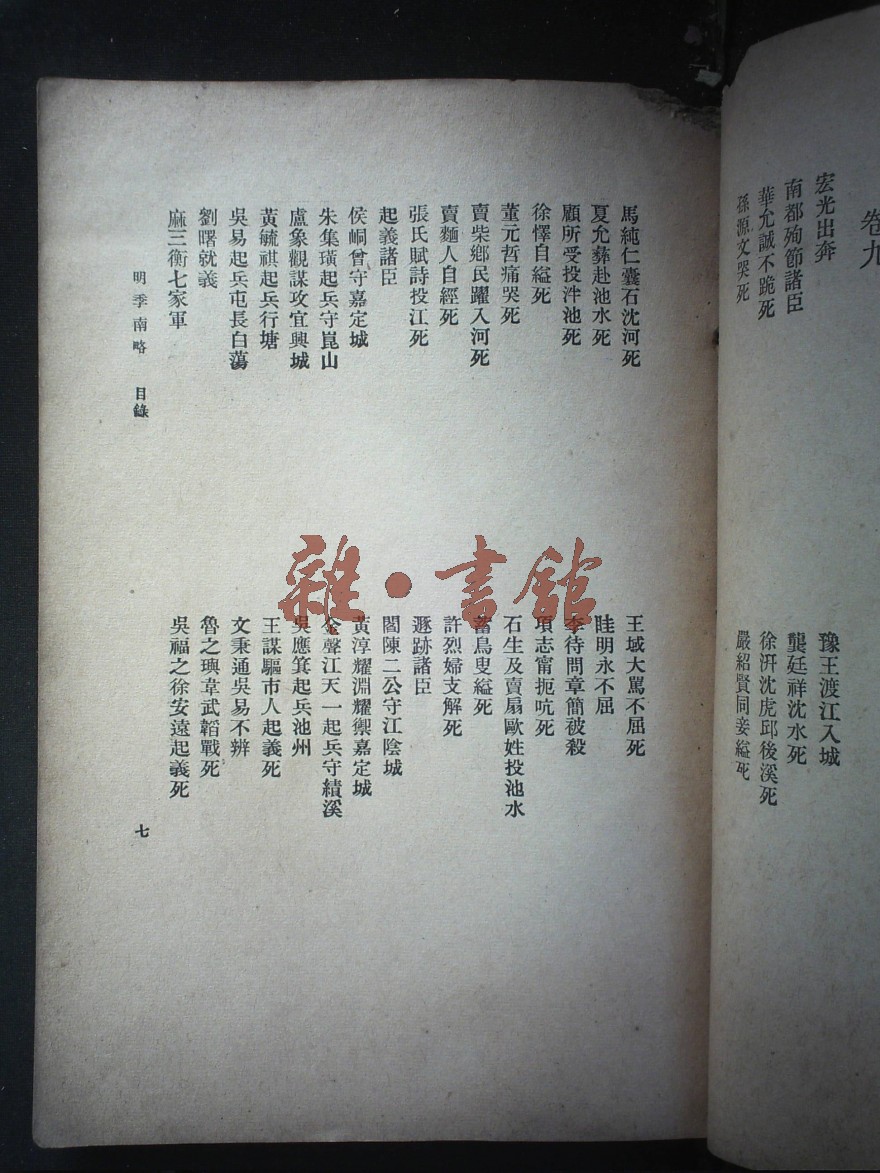 卷九
宏光出奔
豫王渡江入城
南都殉節諸臣
龔廷祥沈水死
華允誠不跪死
徐汧沈虎邱後溪死
孫源文哭死
嚴紹賢同妾縊死
馬純仁囊石沈河死
王域大罵不屈死
夏允彝赴池水死
眭明永不屈
顧所受投泮池死
李待問章簡被殺
徐懌自縊死
項志甯扼吭死
董元哲痛哭死
石生及賣扇歐姓投池水
賣柴鄉民躍入河死
畜鳥叟縊死
賣麵人自經死
許烈婦支解死
張氏賦詩投江死
遯跡諸臣
起義諸臣
閻陳二公守江陰城
侯峒曾守嘉定城
黃淳耀淵耀禦嘉定城
朱集璜起兵守崑山
金聲江天一起兵守績溪
盧象觀謀攻宜興城
吳應箕起兵池州
黃毓祺起兵行塘
王謀驅市人起義死
吳易起兵屯長白蕩
文秉通吳易不辨
劉曙就義
魯之璵韋武韜戰死
麻三衡七家軍
吳福之徐安遠起義死
明季南略 目錄
七
雜·書館